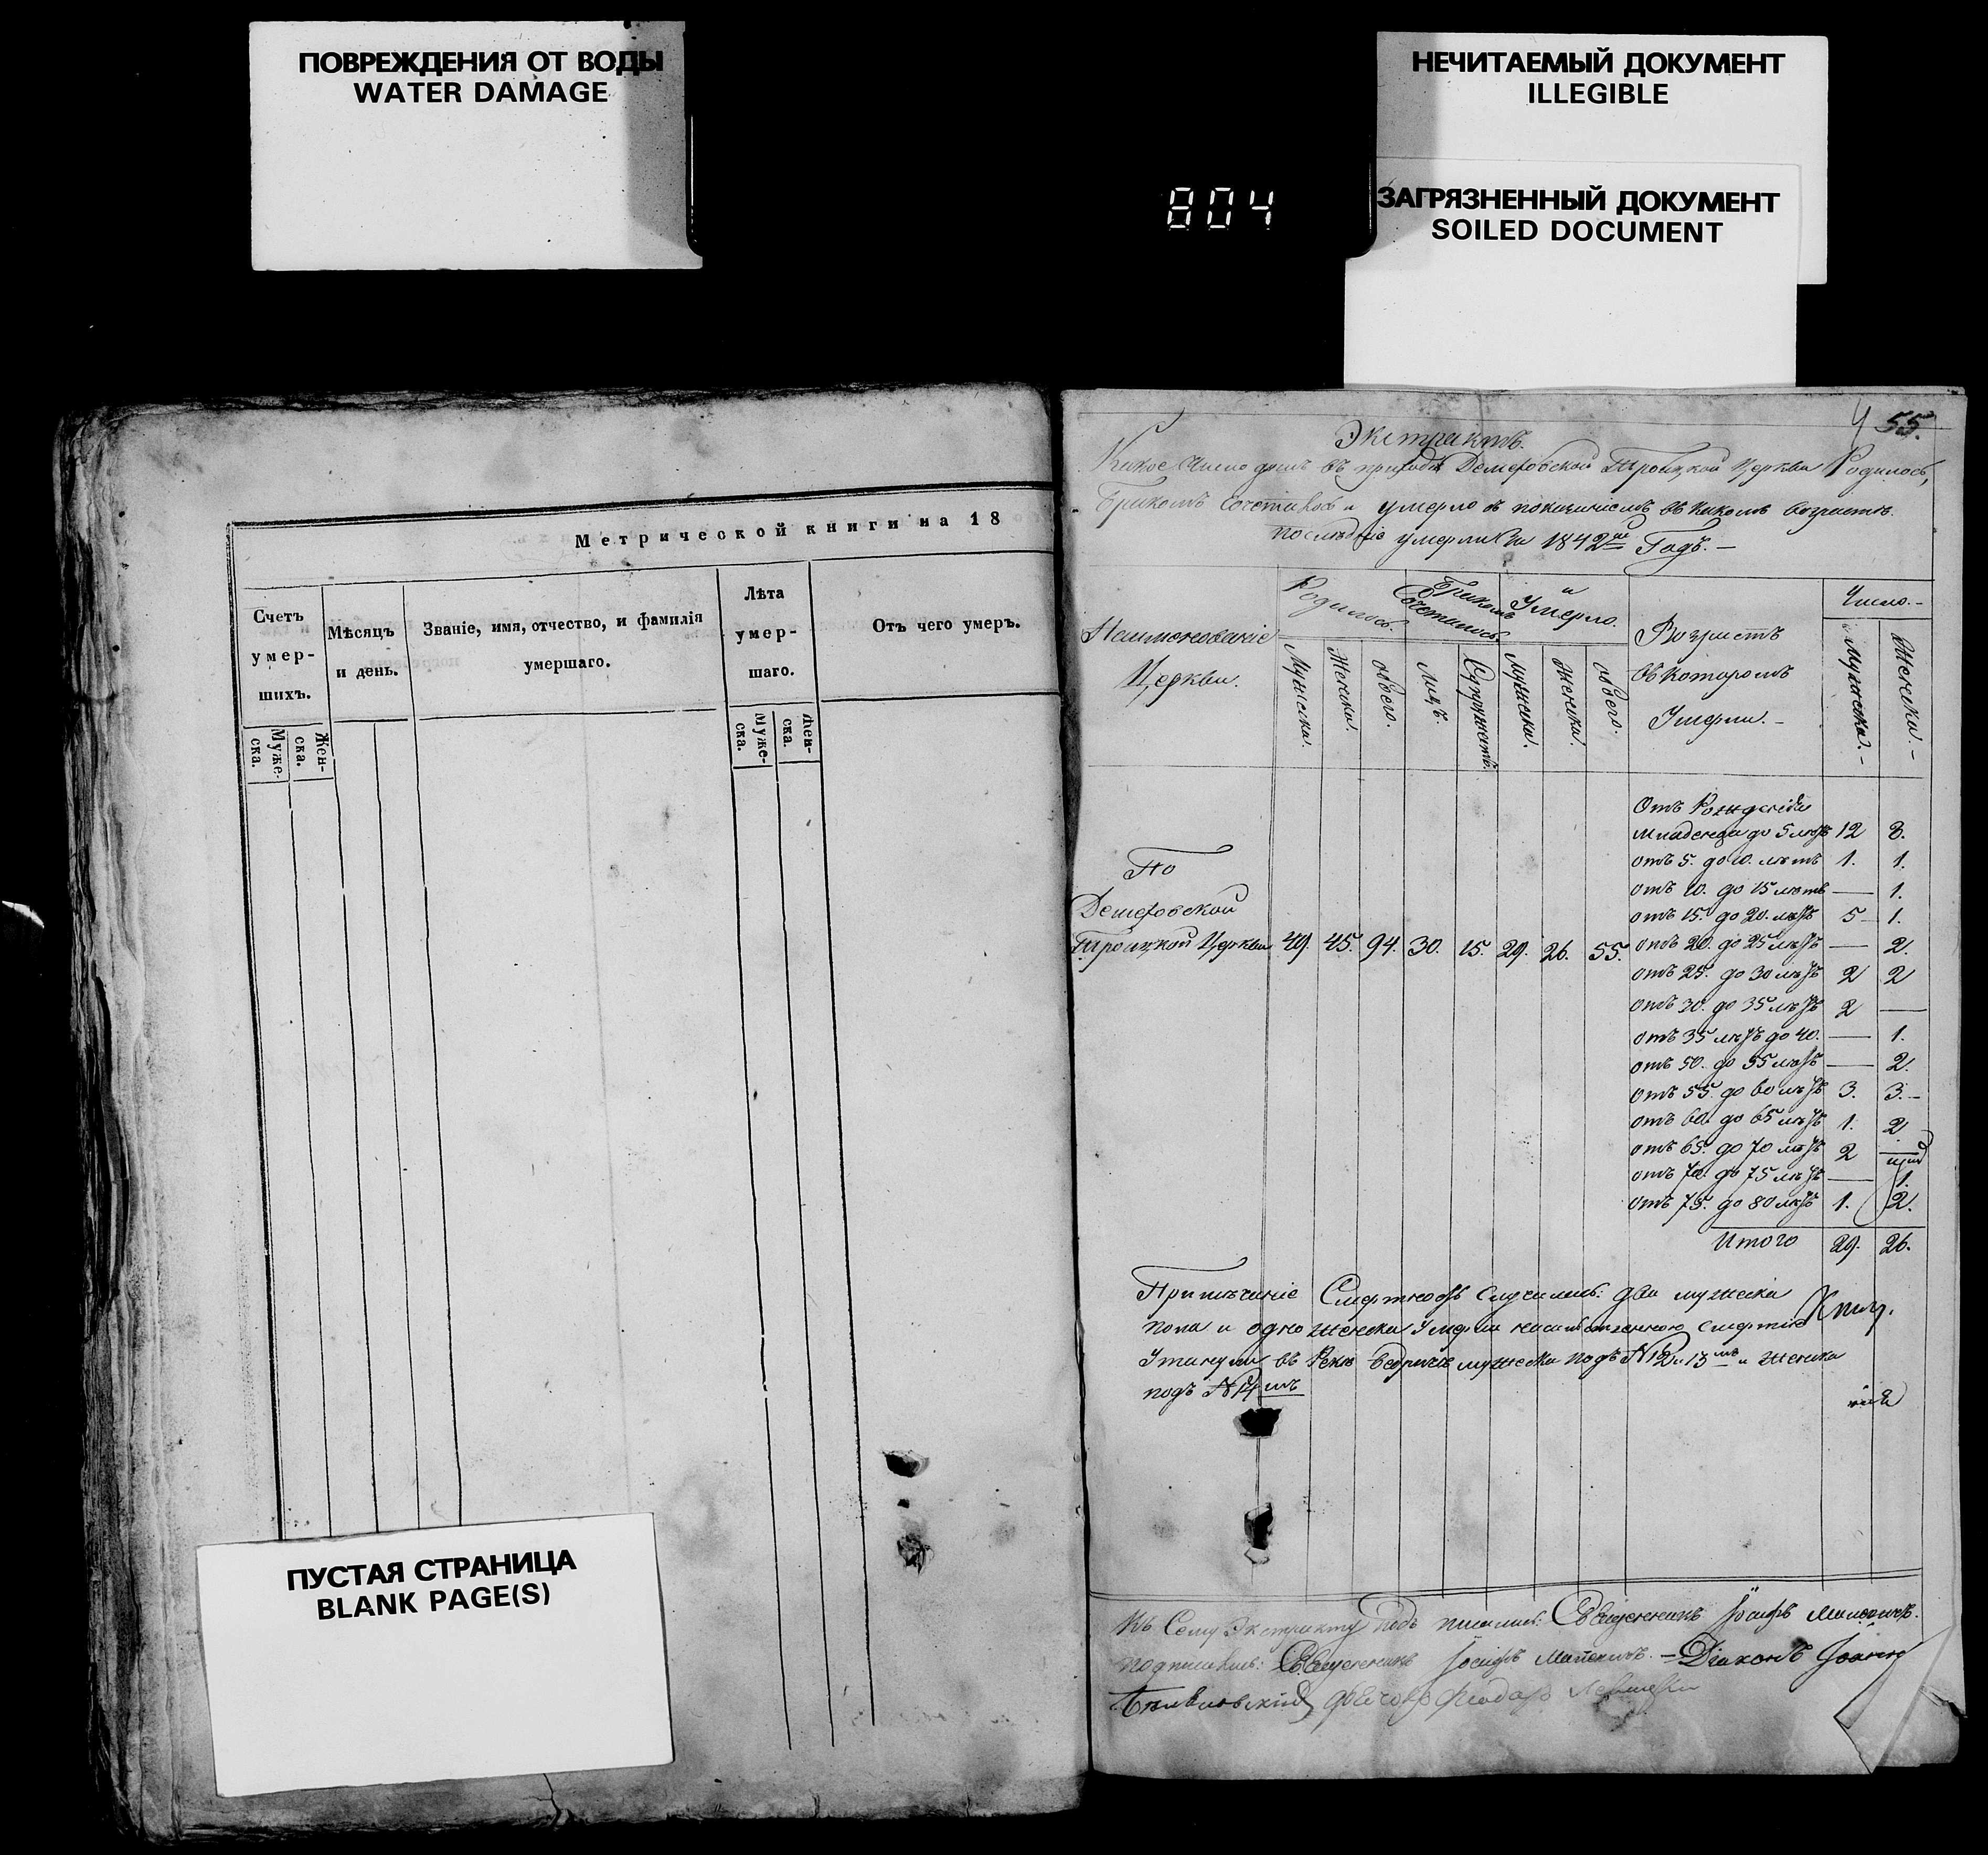 ПОВРЕЖДЕНИЯ ОТ ВОДЫ
WATER DAMAGE
НЕЧИТАЕМЫЙ ДОКУМЕНТ
ILLEGIBLE
ЗАГРЯЗНЕННЫЙ ДОКУМЕНТ
SOILED DOCUMENT
804
Метрической книги на 18
Счетъ умер-шихъ.
Мѣсяцъ и день.
Званіе, имя, отчество, и фамилія умершаго.
Лѣта умер-шаго.
Отъ чего умеръ.
Муже-ска.
Жен-ска.
Муже-ска.
Жен-ска.
ПУСТАЯ СТРАНИЦА
BLANK PAGE(S)
55.
Экстрактъ.
Какое число душъ въ приходѣ Троицкой Церкви Родилось,
Бракомъ Сочеталось и умерло съ показаніемъ въ какомъ возрастѣ
последніе умерли за 1842й Годъ. —
Наименованіе
Церкви.
Родилось.
Бракомъ Сочеталось
и Умерло.
Возрастъ
въ которомъ
Умерли. —
Число. —
Мужеска.
Женска.
обоего.
Лицъ.
Супружествъ.
Мужеска.
Женска.
обоего.
Мужеска. —
Женска. —
По
Троицкой Церкви 49. 45. 94. 30. 15. 29. 26. 55.
Отъ Рожденія
младенца до 5 лѣтъ 12 8.
отъ 5. до 10. лѣтъ 1. 1.
отъ 10. до 15 лѣтъ — 1.
отъ 15. до 20. лѣтъ 5 1.
отъ 20. до 25 лѣтъ — 2.
отъ 25. до 30 лѣтъ 2 2
отъ 30. до 35 лѣтъ 2 —
отъ 35 лѣтъ до 40. — 1.
отъ 50. до 55 лѣтъ — 2.
отъ 55. до 60 лѣтъ 3. 3. —
отъ 60. до 65 лѣтъ 1. 2
отъ 65. до 70 лѣтъ 2 —
отъ 70. до 75 лѣтъ — 1.
отъ 75. до 80 лѣтъ 1. 2.
Итого 29. 26.
Примѣчаніе два мужеска
пола и одно женска Умерли смертію
Утанули въ Реке мужеска подъ №12 и 13мъ и женска
подъ №14мъ
Къ Сему Экстракту Священникъ Іосифъ
Священникъ Іосифъ — Діаконъ Іоаннъ